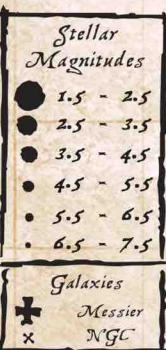 Stellar
Magnitudes
1.5 - 2.5
2.5 - 3.5
3.5 - 4.5
4.5 - 5.5
5.5 - 6.5
6.5 - 7.5
Galaxies
Messier
NGC